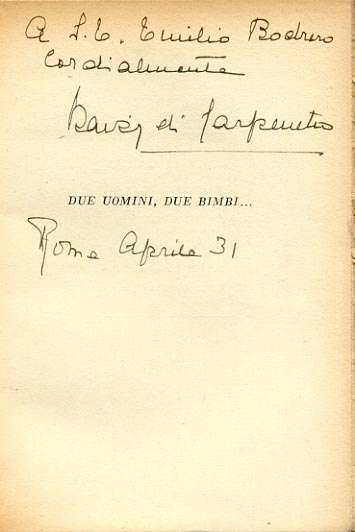 A S. E. Emilio Bodrero
Cordialmente
Davįd di Carpeneto
DUE UOMINI, DUE BIMBI...
Roma Aprile 31